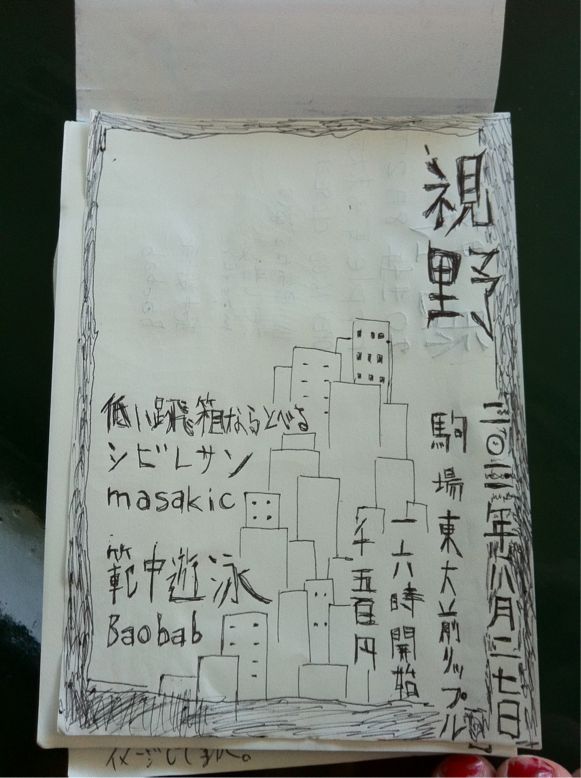 視野
二〇一二年八月二七日
駒場東大前リップル
一六時開始
千五百円
低い跳び箱ならとべる
シビレサン
masakic
範中遊泳
Baobab